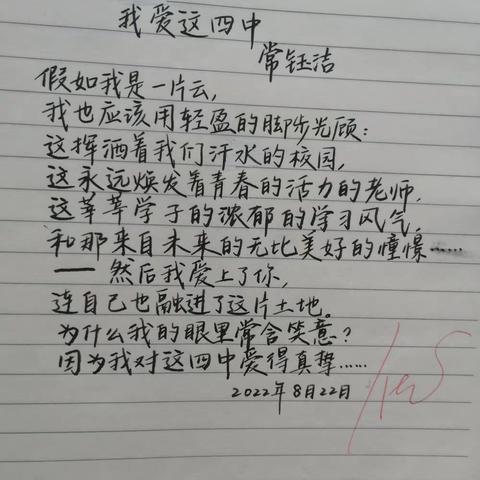 我爱这四中
常钰洁
假如我是一片云,
我也应该用轻盈的脚步光顾:
这挥洒着我们汗水的校园,
这永远焕发着青春的活力的老师,
这莘莘学子的浓郁的学习风气,
和那来自未来的无比美好的憧憬……
——然后我爱上了你,
连自己也融进了这片土地。
为什么我的眼里常含笑意?
因为我对这四中爱得真挚……
2022年8月22日